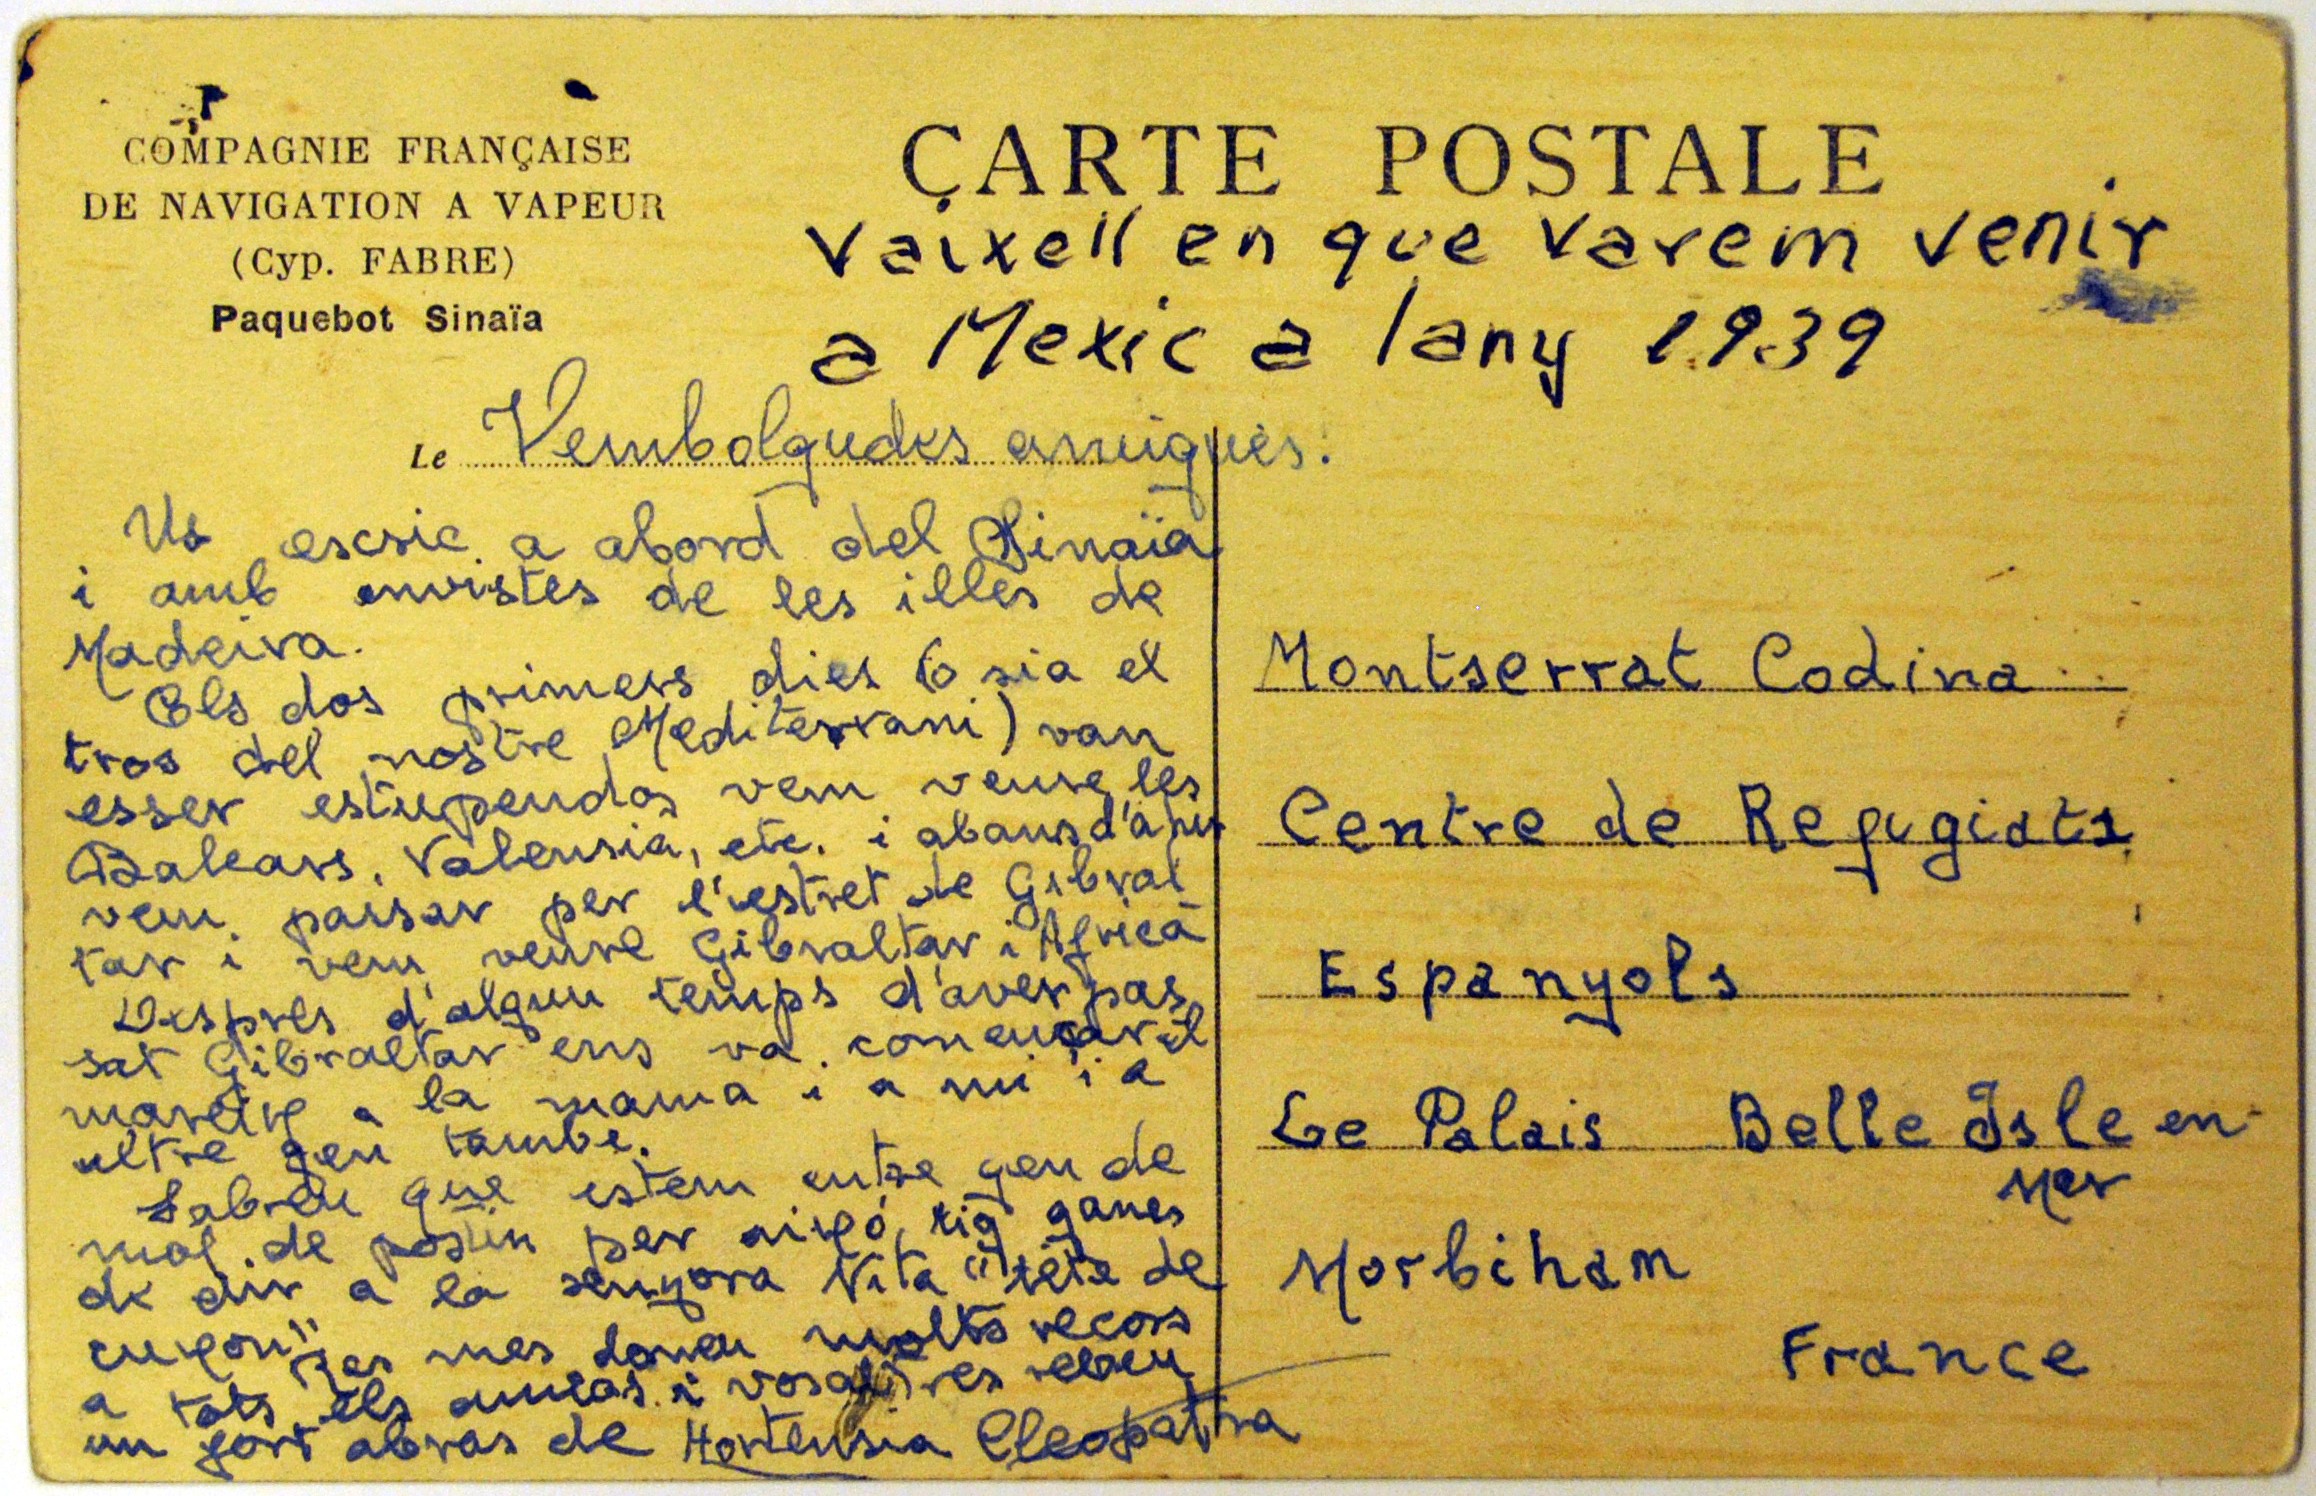 COMPAGNIE FRANÇAISE
DE NAVIGATION A VAPEUR
(Cyp. FABRE)
Paquebot Sinaïa
CARTE POSTALE
Vaixell en que varem venir
a Mexic a lany 1939
Le Vembolgudes amigues:
Us escric a abord del Sinaïa
i amb envistes de les illes de
Madeira.
Els dos primers dies (o sia el
tros del nostre Mediterrani) van
esser estupendos vem veure les
Balears, Valensia, etc. i abans d'ahir
vem passar per l'estret de Gibral
tar i vem veure Gibraltar i Africa
Despres d'algun temps d'aver pas
sat Gibraltar ens va començar el
mareixe a la mama i a mi i a
altre gen també.
Sabreu que estem entre gen de
mol de postin per aixó tig ganes
de dir a la senyora Vita "tête de
cuxon" Res mes doneu molts recors
a tots els amics i vosaltres rebeu
un fort abras de Hortensia Cleopatra
Montserrat Codina
Centre de Refugiats
Espanyols
Le Palais Belle Isle en
Mer
Morbiham
France